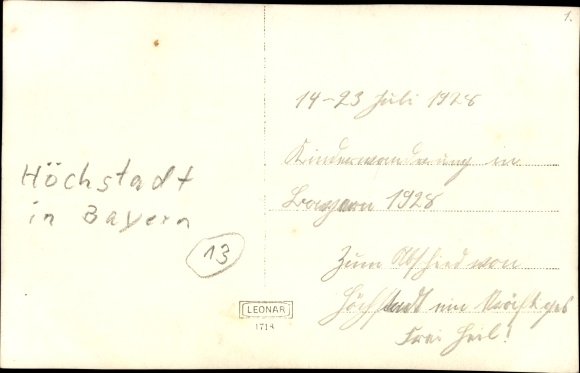 1.
Höchstadt
in Bayern
13
LEONAR
1714
14-23 Juli 1928
Kinderwanderung in
Bayern 1928
Zum Abschied von
Höchstadt ein kräftiges
Frei Heil!